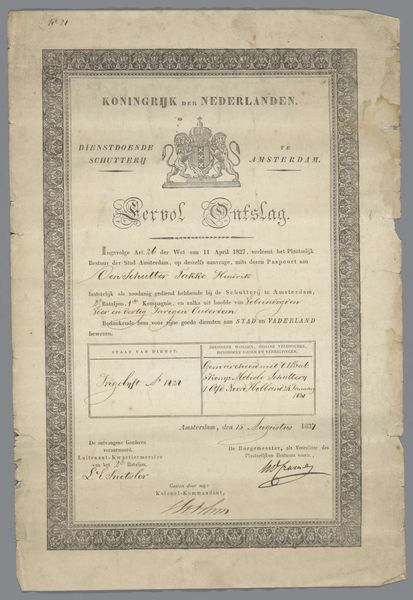 No. 21
KONINGRIJK DER NEDERLANDEN.
DIENSTDOENDE
SCHUTTERIJ
TE
AMSTERDAM.
Eervol Ontslag.
Ingevolge Art. 26 der Wet van 11 April 1827, verleent het Plaatselijk
Bestuur der Stad Amsterdam, op deszelfs aanvrage, mits dezen Paspoort aan
Den Schutter Jakke Hendrik
laatstelijk als zoodanig gediend hebbende bij de Schutterij te Amsterdam,
Bataljon, 1ste Kompagnie, en zulks uit hoofde van
Vier en dertig Jarigen Ouderdom
Bedankende hem voor zijne goede diensten aan STAD en VADERLAND
bewezen.
STAAT VAN DIENST.
BIJZONDERE WONDEN, BEDANE VELDTOGTEN,
Ingelyft Ao 1821
Gemarcheerd met 't 1 Bat
Mobiele Schuttery
Noord Holland January
1831
Amsterdam, den 15 Augustus 1837
De ontvangene Goederen
verantwoord.
Luitenant-Kwartiermeester
van het 2de Bataljon.
De Burgemeester, als Voorzitter des
Plaatselijken Bestuurs voorn.,
Gezien door mij:
Kolonel-Kommandant,